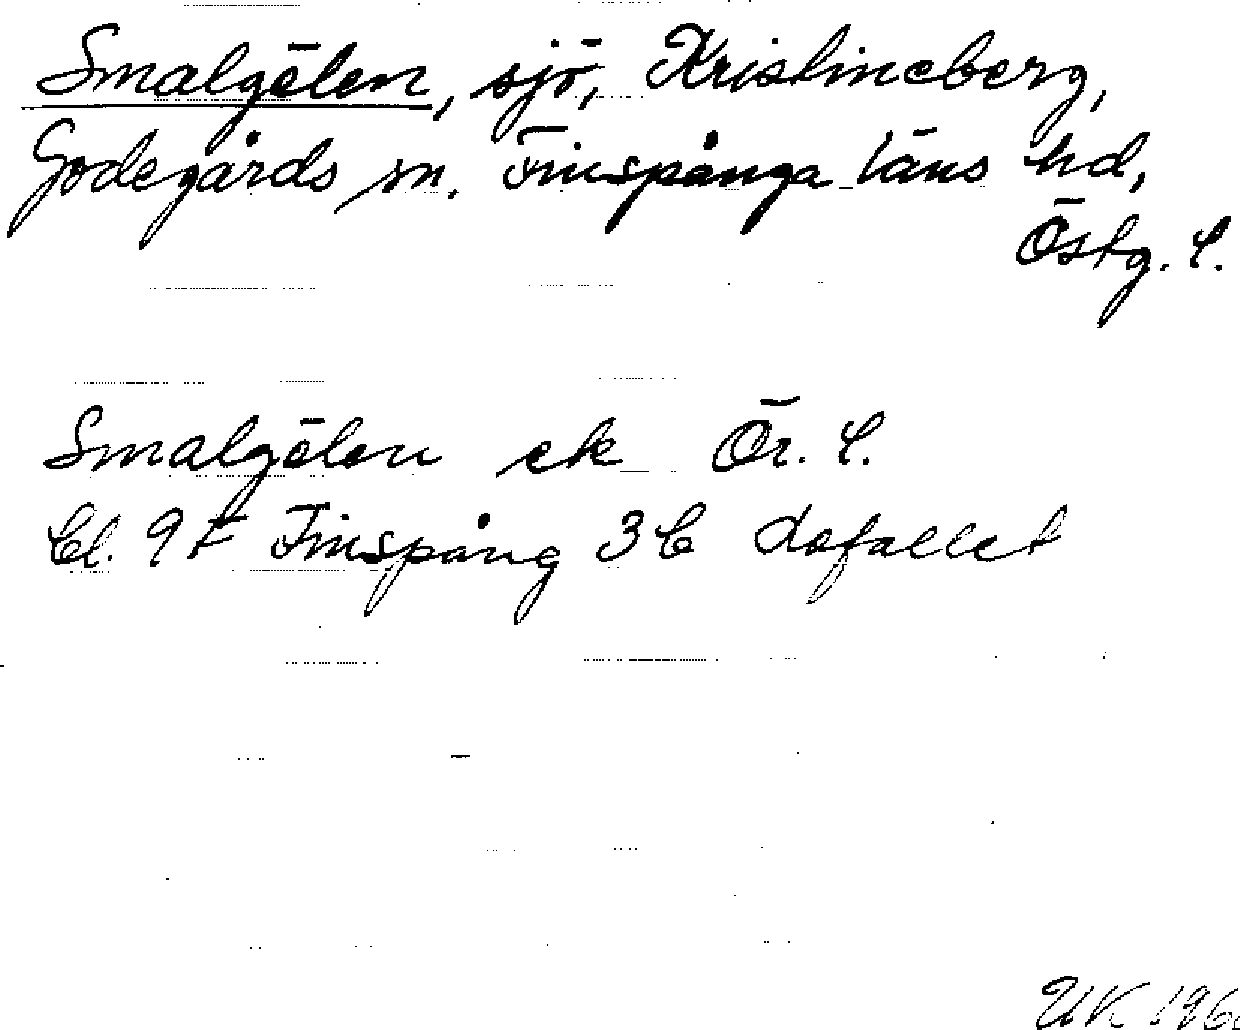 Smalgölen, sjö, Kristineberg,
Godegårds sn. Finspånga läns hd,
Östg. l.
Smalgölen ek Ör. l.
Bl. 9F Finspång 3 b
UK